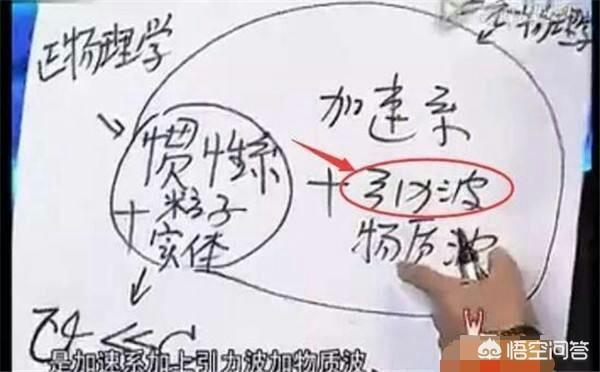 正物理学
物理学
加速系
+引力波
物质波
惯性系
+粒子
实体
<<C
是加速系加上引力波加物质波
悟空问答